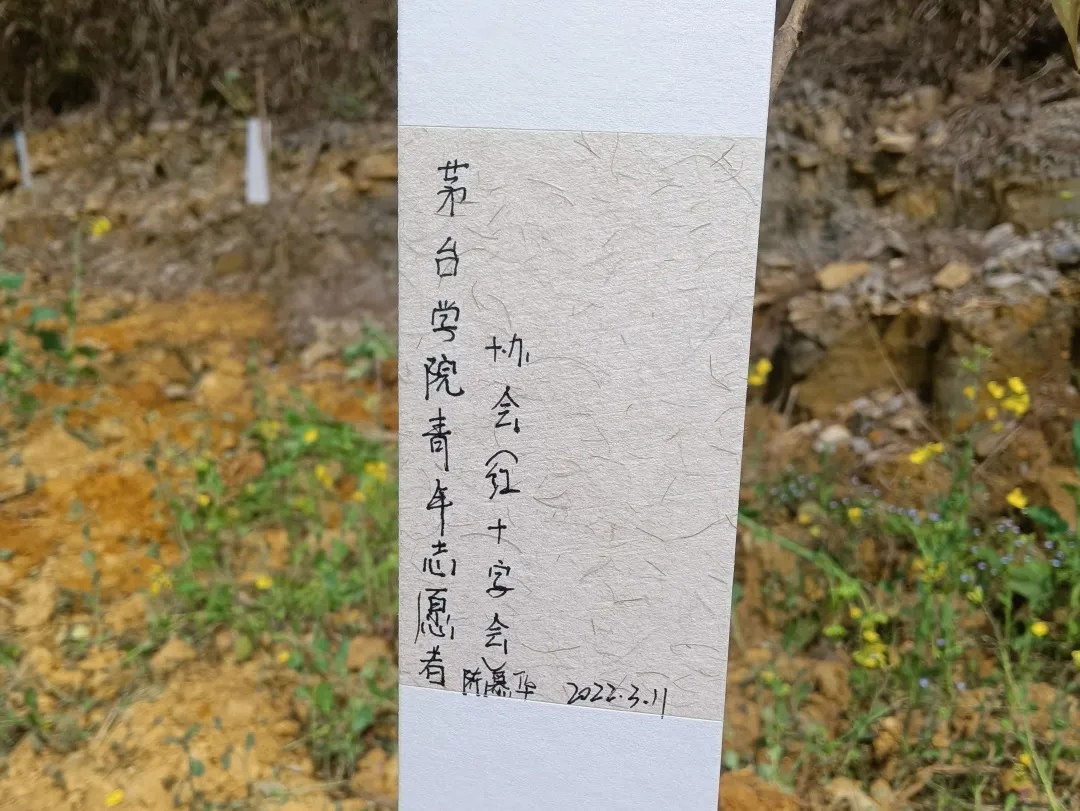 茅台学院青年志愿者
协会(红十字会)
2022.3.11